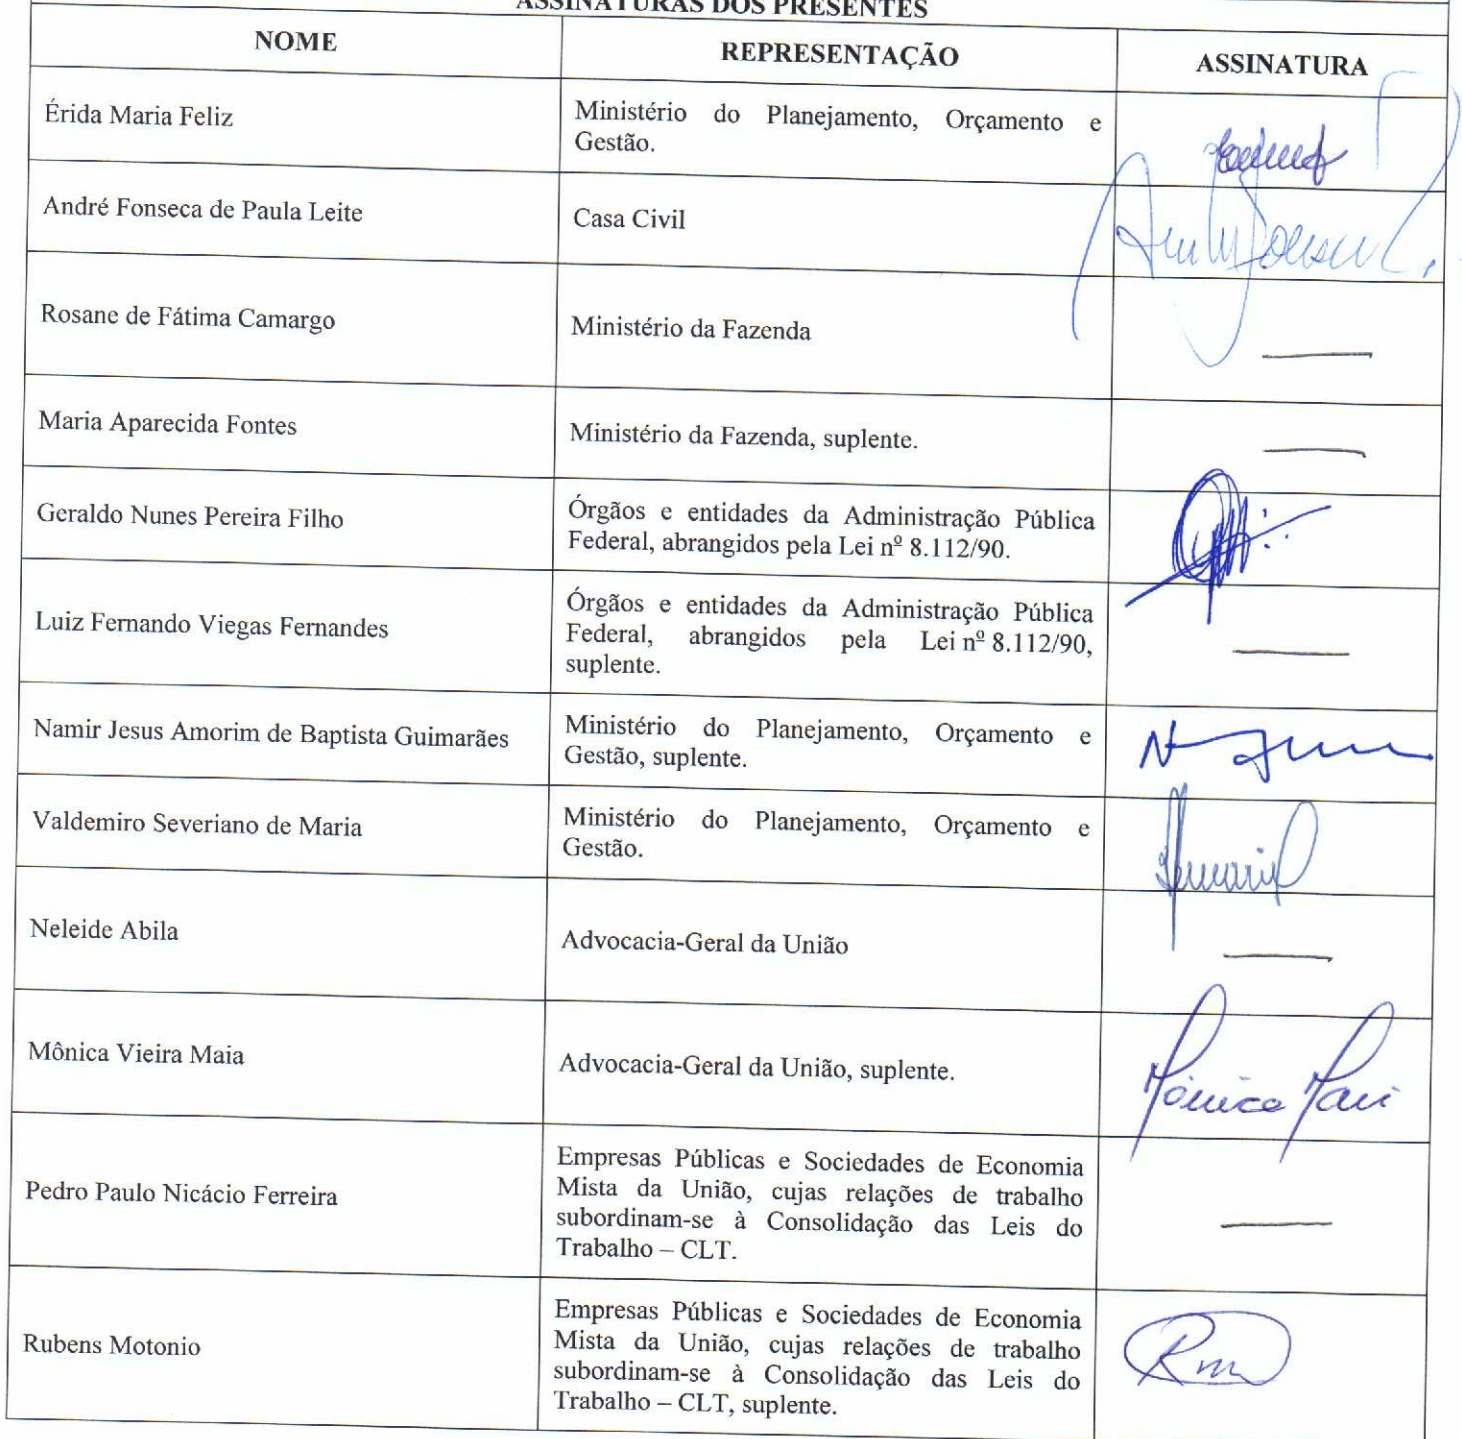 ASSINATURAS DOS PRESENTES
NOME REPRESENTAÇÃO ASSINATURA
Érida Maria Feliz
Ministério do Planejamento, Orçamento e
Gestão.
André Fonseca de Paula Leite
Casa Civil
Rosane de Fátima Camargo
Ministério da Fazenda
Maria Aparecida Fontes
Ministério da Fazenda, suplente.
Geraldo Nunes Pereira Filho
Órgãos e entidades da Administração Pública
Federal, abrangidos pela Lei nº 8.112/90.
Luiz Fernando Viegas Fernandes
Órgãos e entidades da Administração Pública
Federal, abrangidos pela Lei nº 8.112/90,
suplente.
Namir Jesus Amorim de Baptista Guimarães
Ministério do Planejamento, Orçamento e
Gestão, suplente.
Valdemiro Severiano de Maria
Ministério do Planejamento, Orçamento e
Gestão.
Neleide Abila
Advocacia-Geral da União
Mônica Vieira Maia
Advocacia-Geral da União, suplente.
Mônica
Pedro Paulo Nicácio Ferreira
Empresas Públicas e Sociedades de Economia
Mista da União, cujas relações de trabalho
subordinam-se à Consolidação das Leis do
Trabalho – CLT.
Rubens Motonio
Empresas Públicas e Sociedades de Economia
Mista da União, cujas relações de trabalho
subordinam-se à Consolidação das Leis do
Trabalho – CLT, suplente.